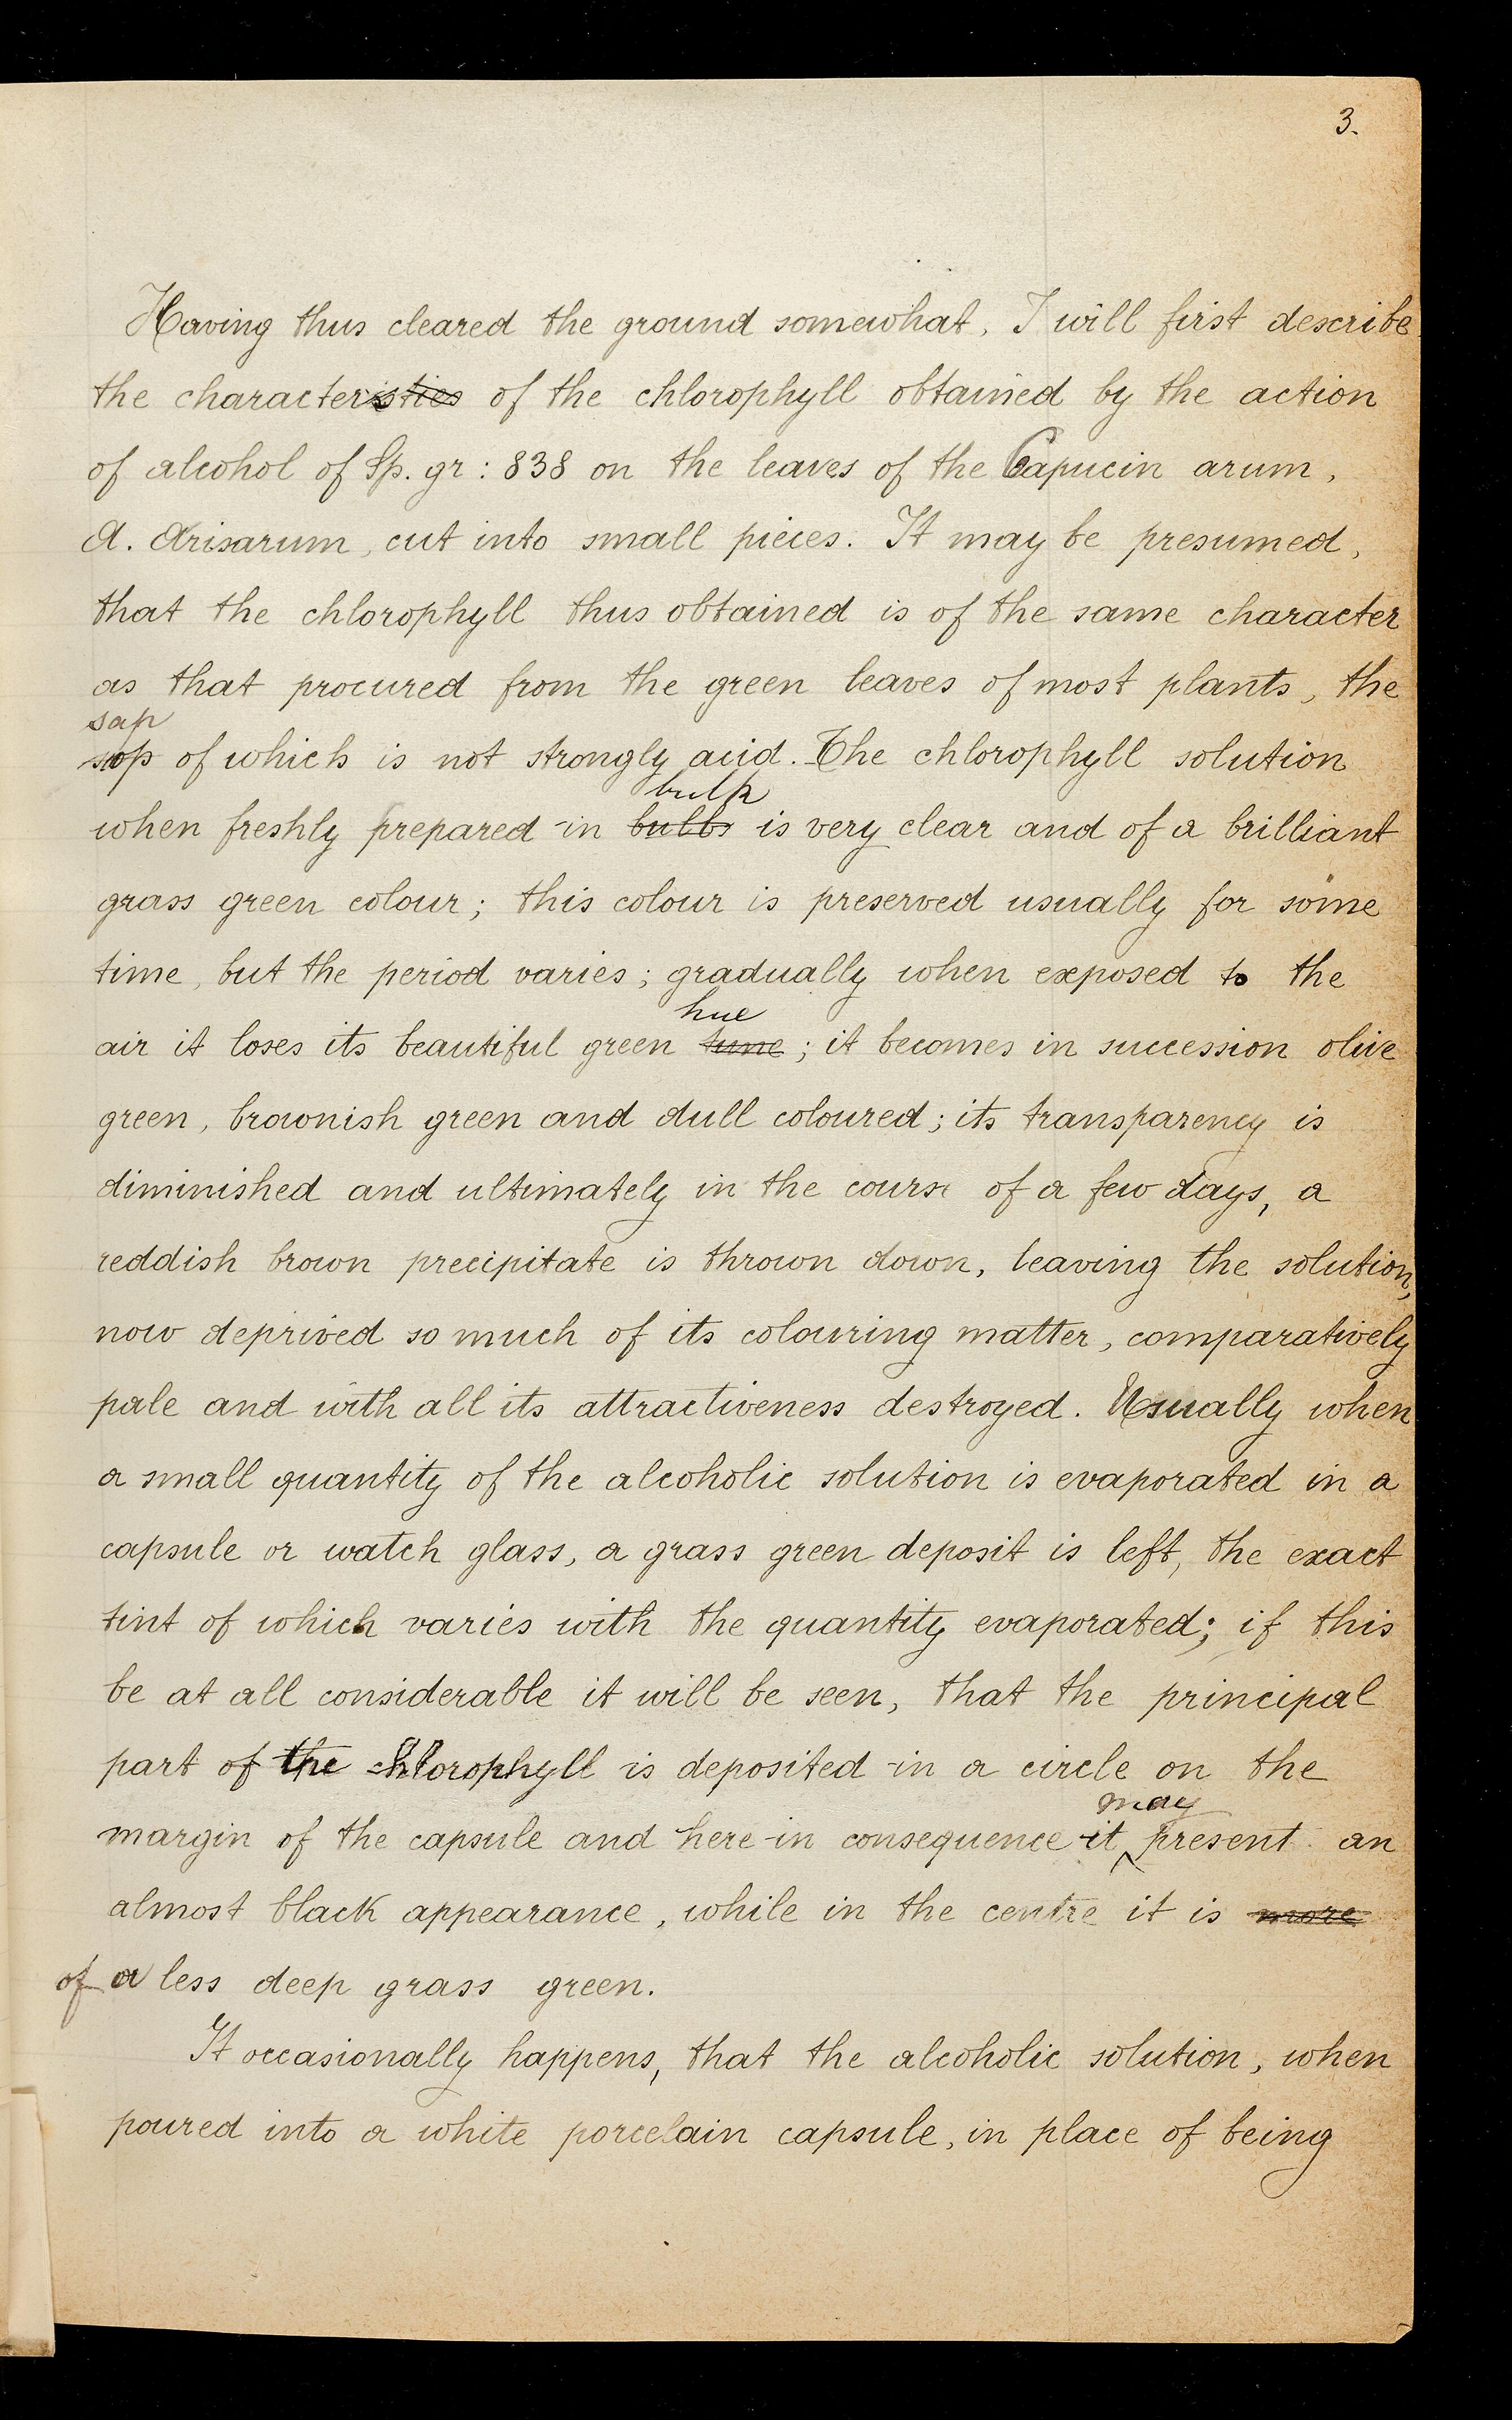 3.
Having thus cleared the ground somewhat, I will first describe
the characteristics of the chlorophyll obtained by the action
of alcohol of Sp. gr: 838 on the leaves of the Capucin arum,
A. Arisarum, cut into small pieces. It may be presumed,
that the chlorophyll thus obtained is of the same character
as that procured from the green leaves of most plants, the
sap
sop of which is not strongly acid. The chlorophyll solution
bulk
when freshly prepared in bulbs is very clear and of a brilliant
grass green colour; this colour is preserved usually for some
time, but the period varies; gradually when exposed to the
hue
air it loses its beautiful green tune; it becomes in succession olive
green, brownish green and dull coloured; its transparency is
diminished and ultimately in the course of a few days, a
reddish brown precipitate is thrown down, leaving the solution,
now deprived so much of its colouring matter, comparatively
pale and with all its attractiveness destroyed. Usually when
a small quantity of the alcoholic solution is evaporated in a
capsule or watch glass, a grass green deposit is left, the exact
tint of which varies with the quantity evaporated; if this
be at all considerable it will be seen, that the principal
part of the chlorophyll is deposited in a circle on the
may
margin of the capsule and here in consequence it ‸ present an
almost black appearance, while in the centre it is more
of a less deep grass green.
It occasionally happens, that the alcoholic solution, when
poured into a white porcelain capsule, in place of being